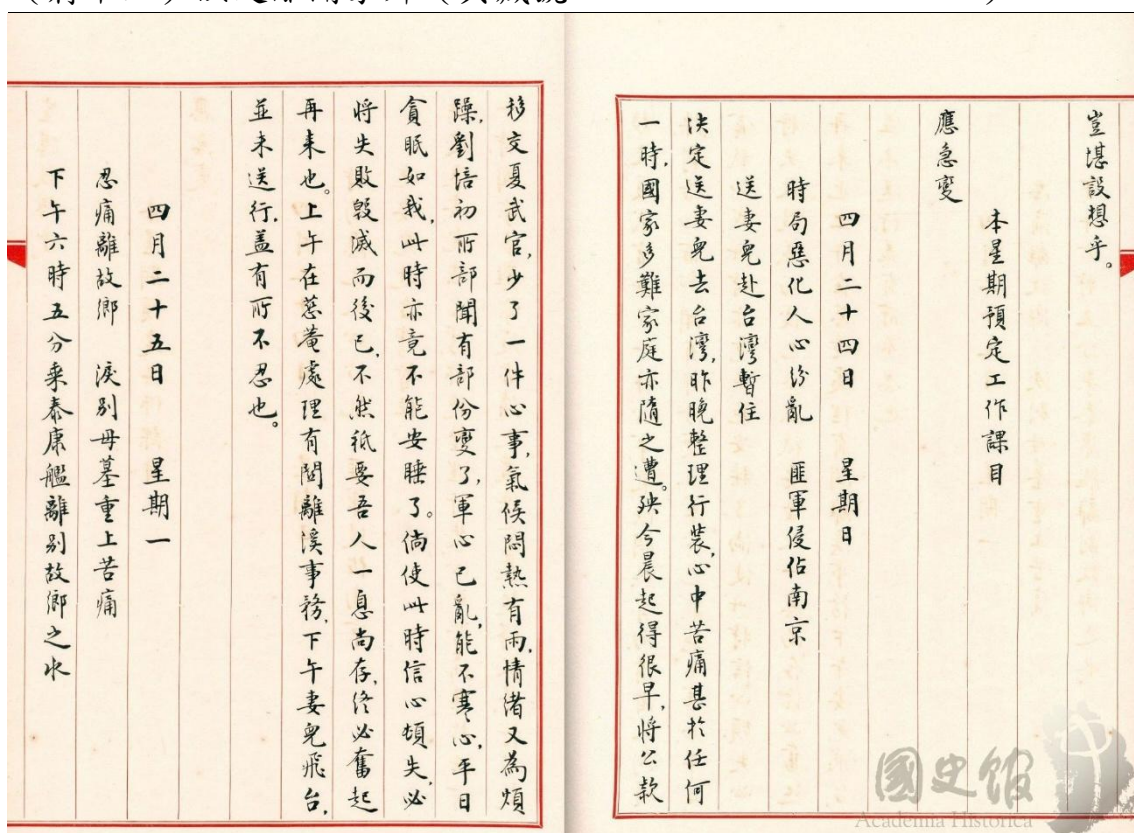 豈堪設想乎。
本星期預定工作課目
應急變
四月二十四日 星期日
時局惡化人心紛亂 匪軍侵佔南京
送妻兒赴台灣暫住
決定送妻兒去台灣,昨晚整理行裝,心中苦痛甚於任何
一時,國家多難家庭亦隨之遭。殃今晨起得很早,將公款
移交夏武官,少了一件心事,氣候悶熱有雨,情渚又為煩
躁,劉培初所部聞有部份變了,軍心已亂,能不寒心,平日
貪眠如我,此時亦竟不能安睡了。倘使此時信心頓失,必
將失敗毀滅而後已,不然祇要吾人一息尚存,終必奮起
再來也。上午在慈菴處理有関離溪事務,下午妻兒飛台,
並未送行,盖有所不忍也。
四月二十五日 星期一
忍痛離故鄉 淚別母墓重上苦痛
下午六時五分乘泰康艦離別故鄉之水
國史館
Academia Historica